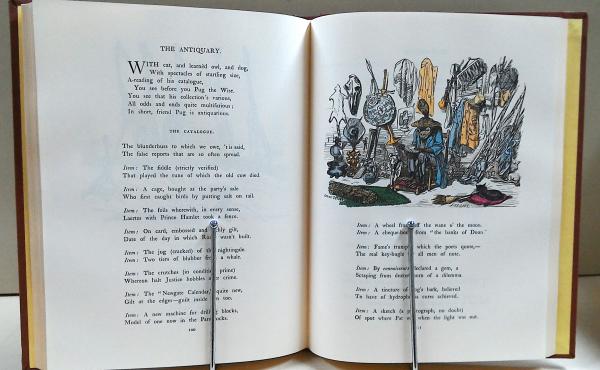 THE ANTIQUARY.
WITH cat, and learnèd owl, and dog,
With spectacles of startling size,
A-reading of his catalogue,
You see before you Pug the Wise.
You see that his collection's various,
All odds and ends quite multifarious;
In short, friend Pug is antiquarious.
THE CATALOGUE.
The blunderbuss to which we owe, 'tis said,
The false reports that are so often spread.
Item: The fiddle (strictly verified)
That played the tune of which the old cow died.
Item: A cage, bought as the party's sale
Who first caught birds by putting salt on tail.
Item: The foils wherewith, in every sense,
Laertes with Prince Hamlet took a fence.
Item: On card, embossed and gilt,
Date of the day in which wasn't built.
Item: The jug (cracked) of the nightingale.
Item: Two tiers of blubber from a whale.
Item: The crutches (in condition prime)
Whereon halt Justice hobbles crime.
Item: The "Newgate Calendar," quite new,
Gilt at the edges—guilt inside too.
Item: A new machine for blocks,
Model of one now in the
100
Item: A wheel from off the wane o' the moon.
Item: A cheque-book from "the banks of Doon"
Item: Fame's trumpet, which the poets quote,—
The real key-bugle all men of note.
Item: By connoisseurs declared a gem, a
Scraping from horn of a dilemma.
Item: A tincture of dog's bark, believed
To have of hydrophobia cures achieved.
Item: A sketch (a photograph, no doubt)
Of spot where Pat was when the light was out.